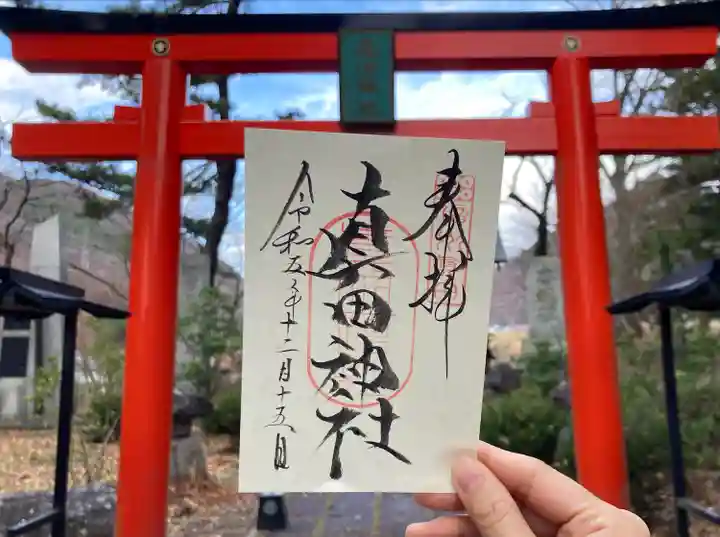 奉拝
真田神社
令和五年十二月十五日